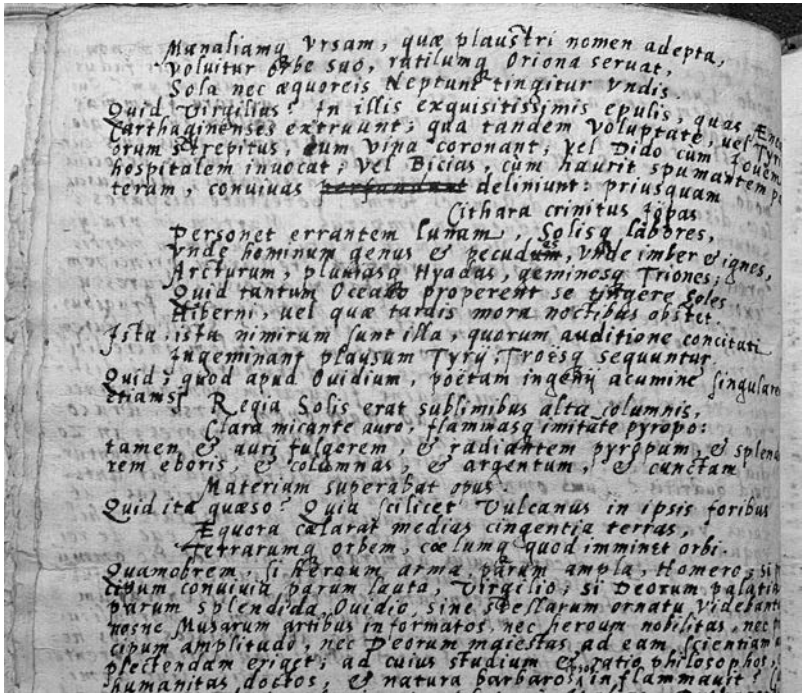 Mænaliamq Vrsam, quæ plaustri nomen adepta,
Voluitur orbe suo, rutilumq Oriona seruat,
Sola nec æquoreis Neptuni tingitur vndis.
Quid Virgilius? In illis exquisitissimis epulis, quas Æneæ
Carthaginenses extruunt; qua tandem voluptate, vel Tyri
orum strepitus, cum vina coronant; vel Dido cum Iouem
hospitalem inuocat; vel Bicias, cum haurit spumantem pa
teram, conuiuas deliniunt: priusquam
Cithara crinitus Iöpas
Personet errantem lunam, Solisq labores,
Vnde hominum genus & pecudes, vnde imber & ignes,
Arcturum, pluuiasq Hyadas, geminosq Triones;
Quid tantum Oceano properent se tingere Soles
Hiberni, uel quæ tardis mora noctibus obstet.
Ista, ista nimirum sunt illa, quorum auditione concitati
Ingeminant plausum Tyrij, Troësq sequuntur.
Quid; quod apud Ouidium, poëtam ingenij acumine singulare
etiamsi Regia Solis erat sublimibus alta columnis,
Clara micante auro, flammasq imitāte pyropo:
tamen & auri fulgorem, & radiantem pyropum, & splendo
rem eboris, & columnas, & argentum, & cunctam
Materiam superabat opus.
Quid ita quæso? Quia scilicet Vulcanus in ipsis foribus
Æquora cælarat medias cingentia terras,
Terrarumq orbem, cœlumq quod imminet orbi.
Quamobrem, si heroum arma parum ampla, Homero; si
cipum conuiuia parum lauta, Virgilio; si Deorum palatia
parum splendida, Ouidio, sine stellarum ornatu videbant
nosne Musarum artibus informatos, nec heroum nobilitas, nec
cipum amplitudo, nec Deorum maiestas ad eam scientiam
plectendam eriget; ad cuius studium & ratio philosophos,
humanitas doctos, & natura barbaros inflammauit?